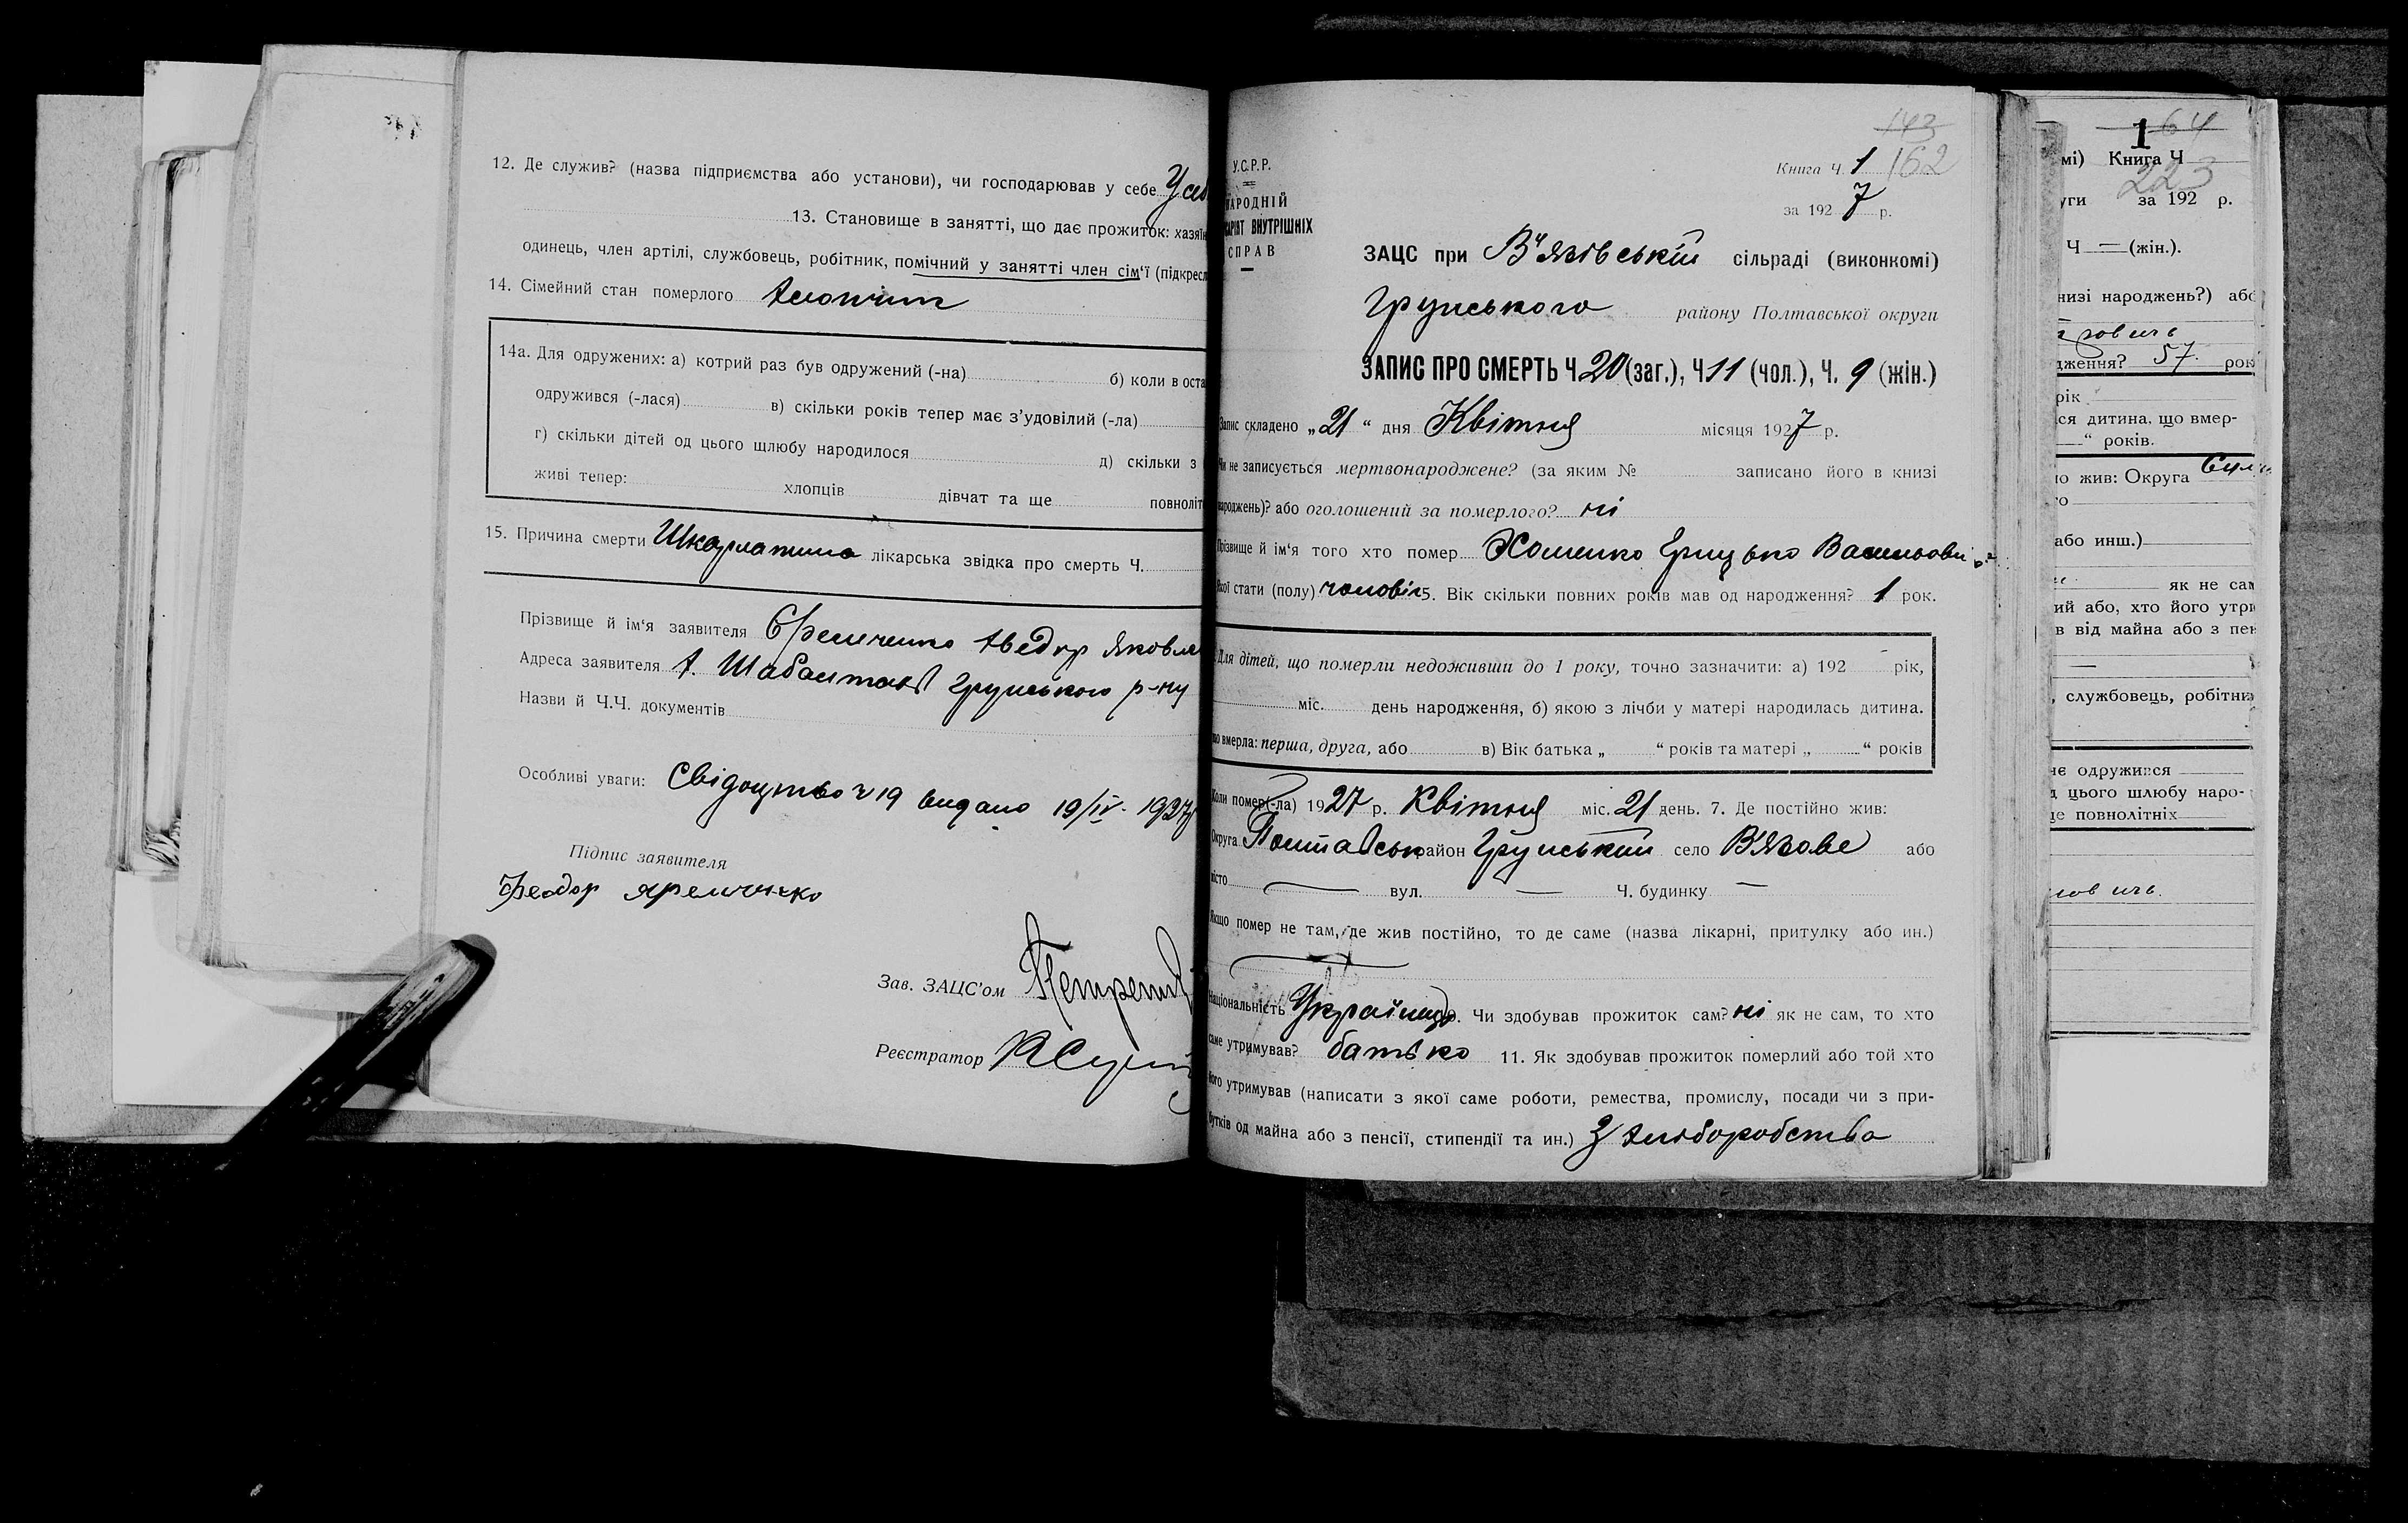 12. Де служив? (назва підприємства або установи), чи господарював у себе
13. Становище в занятті, що дає прожиток: хазяїн
одинець, член артілі, службовець, робітник, помічний у занятті член сім'ї (підкресл
14. Сімейний стан померлого
14а. Для одружених: а) котрий раз був одружений (-на) б) коли в оста
одружився (-лася) в) скільки років тепер має з'удовілий (-ла)
г) скільки дітей од цього шлюбу народилося д) скільки з
живі тепер: хлопців дівчат та ще повноліт
15. Причина смерти Шкарлатина лікарська звідка про смерть Ч.
Прізвище й ім'я заявителя Єремченко Яковле
Адреса заявителя х. Грунського р-ну
Назви й Ч.Ч. документів
Особливі уваги: Свідоцтво ч 19 видано 19/IV. 1927
Підпис заявителя
Феодор Яремченко
Зав. ЗАЦС'ом
Реєстратор
143
Книга Ч. 1 162
за 1927 р.
У.С.Р.Р.
НАРОДНІЙ
САРІЯТ ВНУТРІШНІХ
СПРАВ
ЗАЦС при В'язівській сільраді (виконкомі)
Грунського району Полтавської округи
ЗАПИС ПРО СМЕРТЬ Ч 20 (заг.), Ч 11 (чол.), Ч. 9 (жін.)
Запис складено „21“ дня Квітня місяця 1927 р.
Чи не записується мертвонароджене? (за яким № записано його в книзі
народжень)? або оголошений за померлого? ні
Прізвище й ім'я того хто помер Хоменко Грицько Васильович
Якої стати (полу) чоловіч 5. Вік скільки повних років мав од народження? 1 рок.
Для дітей, що померли недоживши до 1 року, точно зазначити: а) 192 рік,
міс. день народження, б) якою з лічби у матері народилась дитина.
що вмерла: перша, друга, або в) Вік батька „ “ років та матері „ “ років
Коли помер(-ла) 1927 р. Квітня міс. 21 день. 7. Де постійно жив:
Округа Полтавськ район Грунський село В'язове або
місто — вул. — Ч. будинку —
Якщо помер не там, де жив постійно, то де саме (назва лікарні, притулку або ин.)
Національність Українець 9. Чи здобував прожиток сам? ні як не сам, то хто
саме утримував? батько 11. Як здобував прожиток померлий або той хто
його утримував (написати з якої саме роботи, ремества, промислу, посади чи з при-
бутків од майна або з пенсії, стипендії та ин.) З хліборобства
1 64
мі) Книга Ч
223
уги за 192 р.
Ч — (жін.).
низі народжень?) або
дження? 57. рок
рік
ся дитина, що вмер-
“ років.
но жив: Округа
або инш.)
як не сам
ий або, хто його утри
в від майна або з пен
, службовець, робітник
не одружився
д цього шлюбу наро-
це повнолітніх